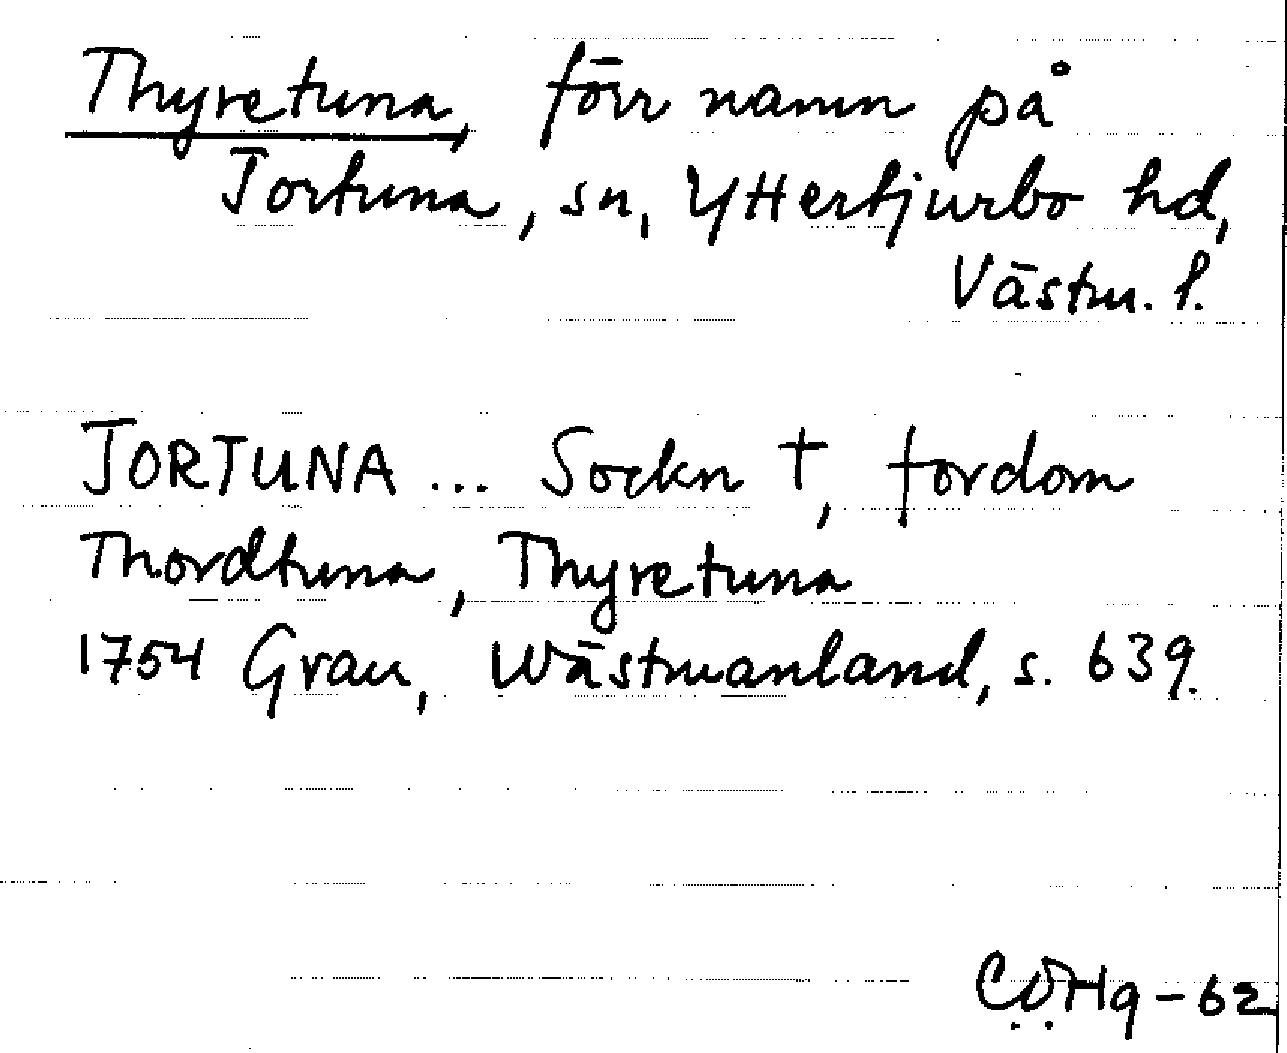 Thyretuna, förr namn på
Tortuna, sn, Yttertjurbo hd,
Västm. l.
TORTUNA ... Sockn †, fordom
Thordtuna, Thyretuna
1754 Grau, Wästmanland, s. 639.
-62